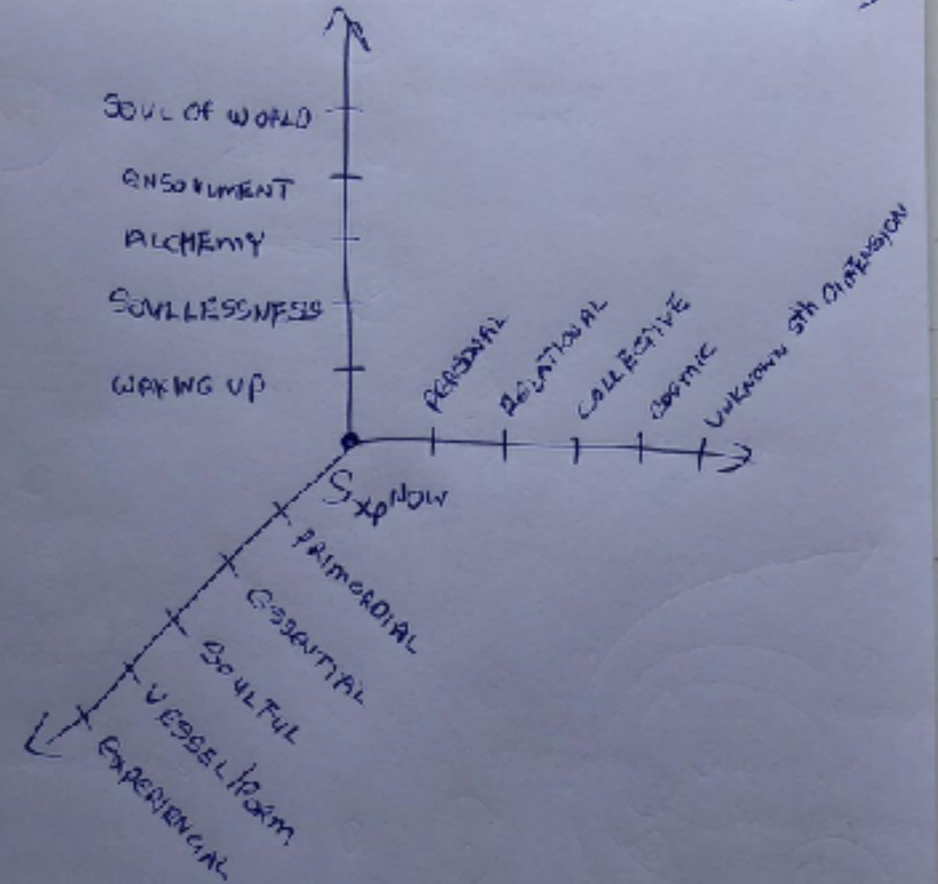 SOUL OF WORLD
ENSOULMENT
ALCHEMY
SOULLESSNESS
WAKING UP
PERSONAL
RELATIONAL
COLLECTIVE
COSMIC
UNKNOWN 5th DIMENSION
NOW
PRIMORDIAL
ESSENTIAL
SOULFUL
VESSEL/FORM
EXPERIENCIAL